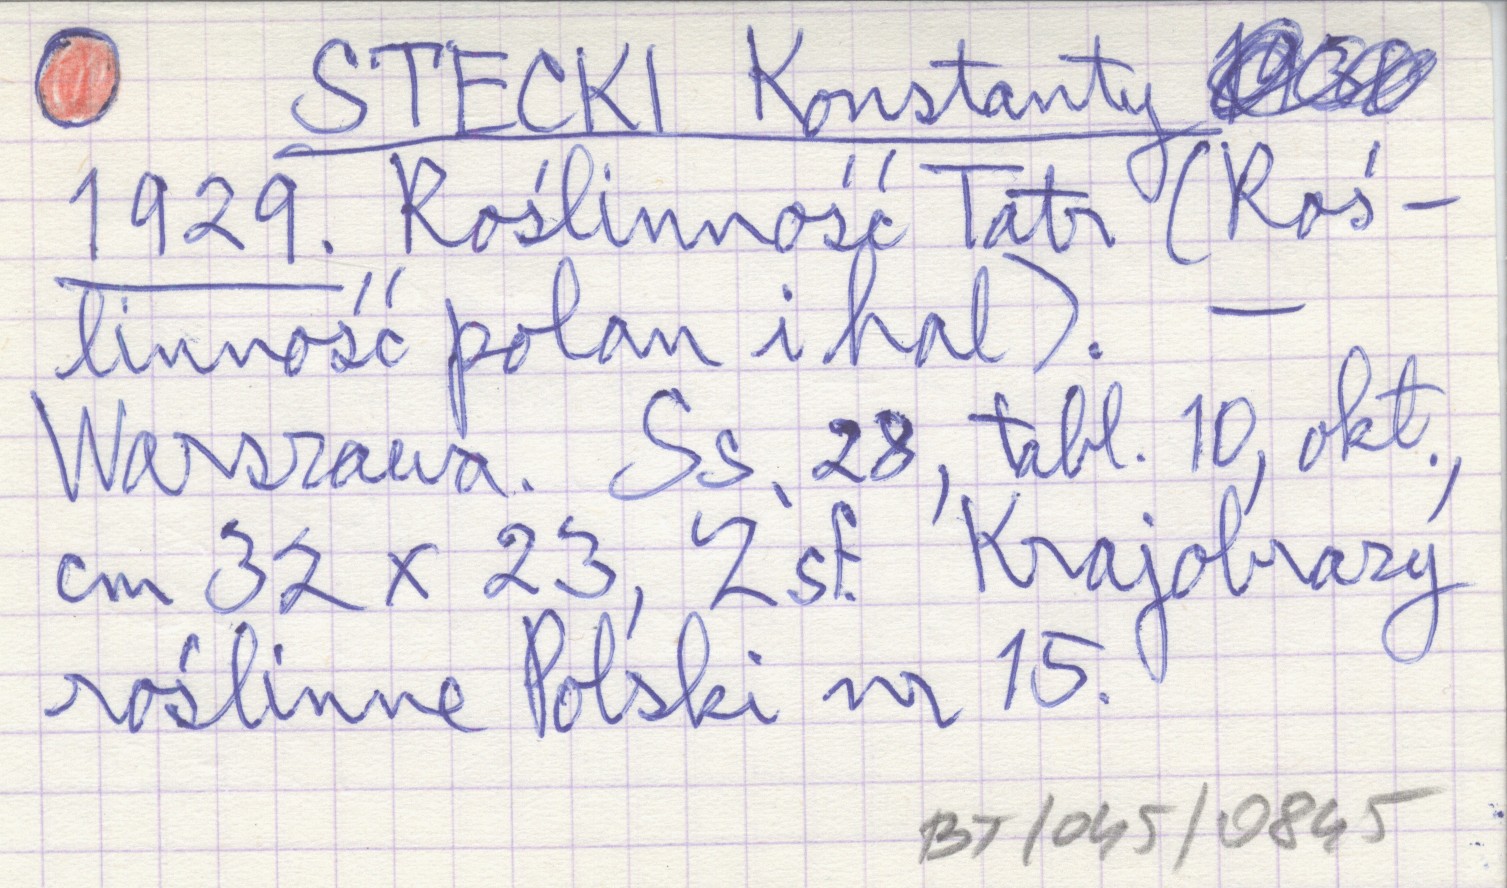 STECKI Konstanty
1929. Roślinność Tatr (Roś-
linność polan i hal). —
Warszawa. Ss. 28, tabl. 10, okt.,
cm 32 x 23, Z sf. Krajobrazy
roślinne Polski nr 15.
BT/045/0845